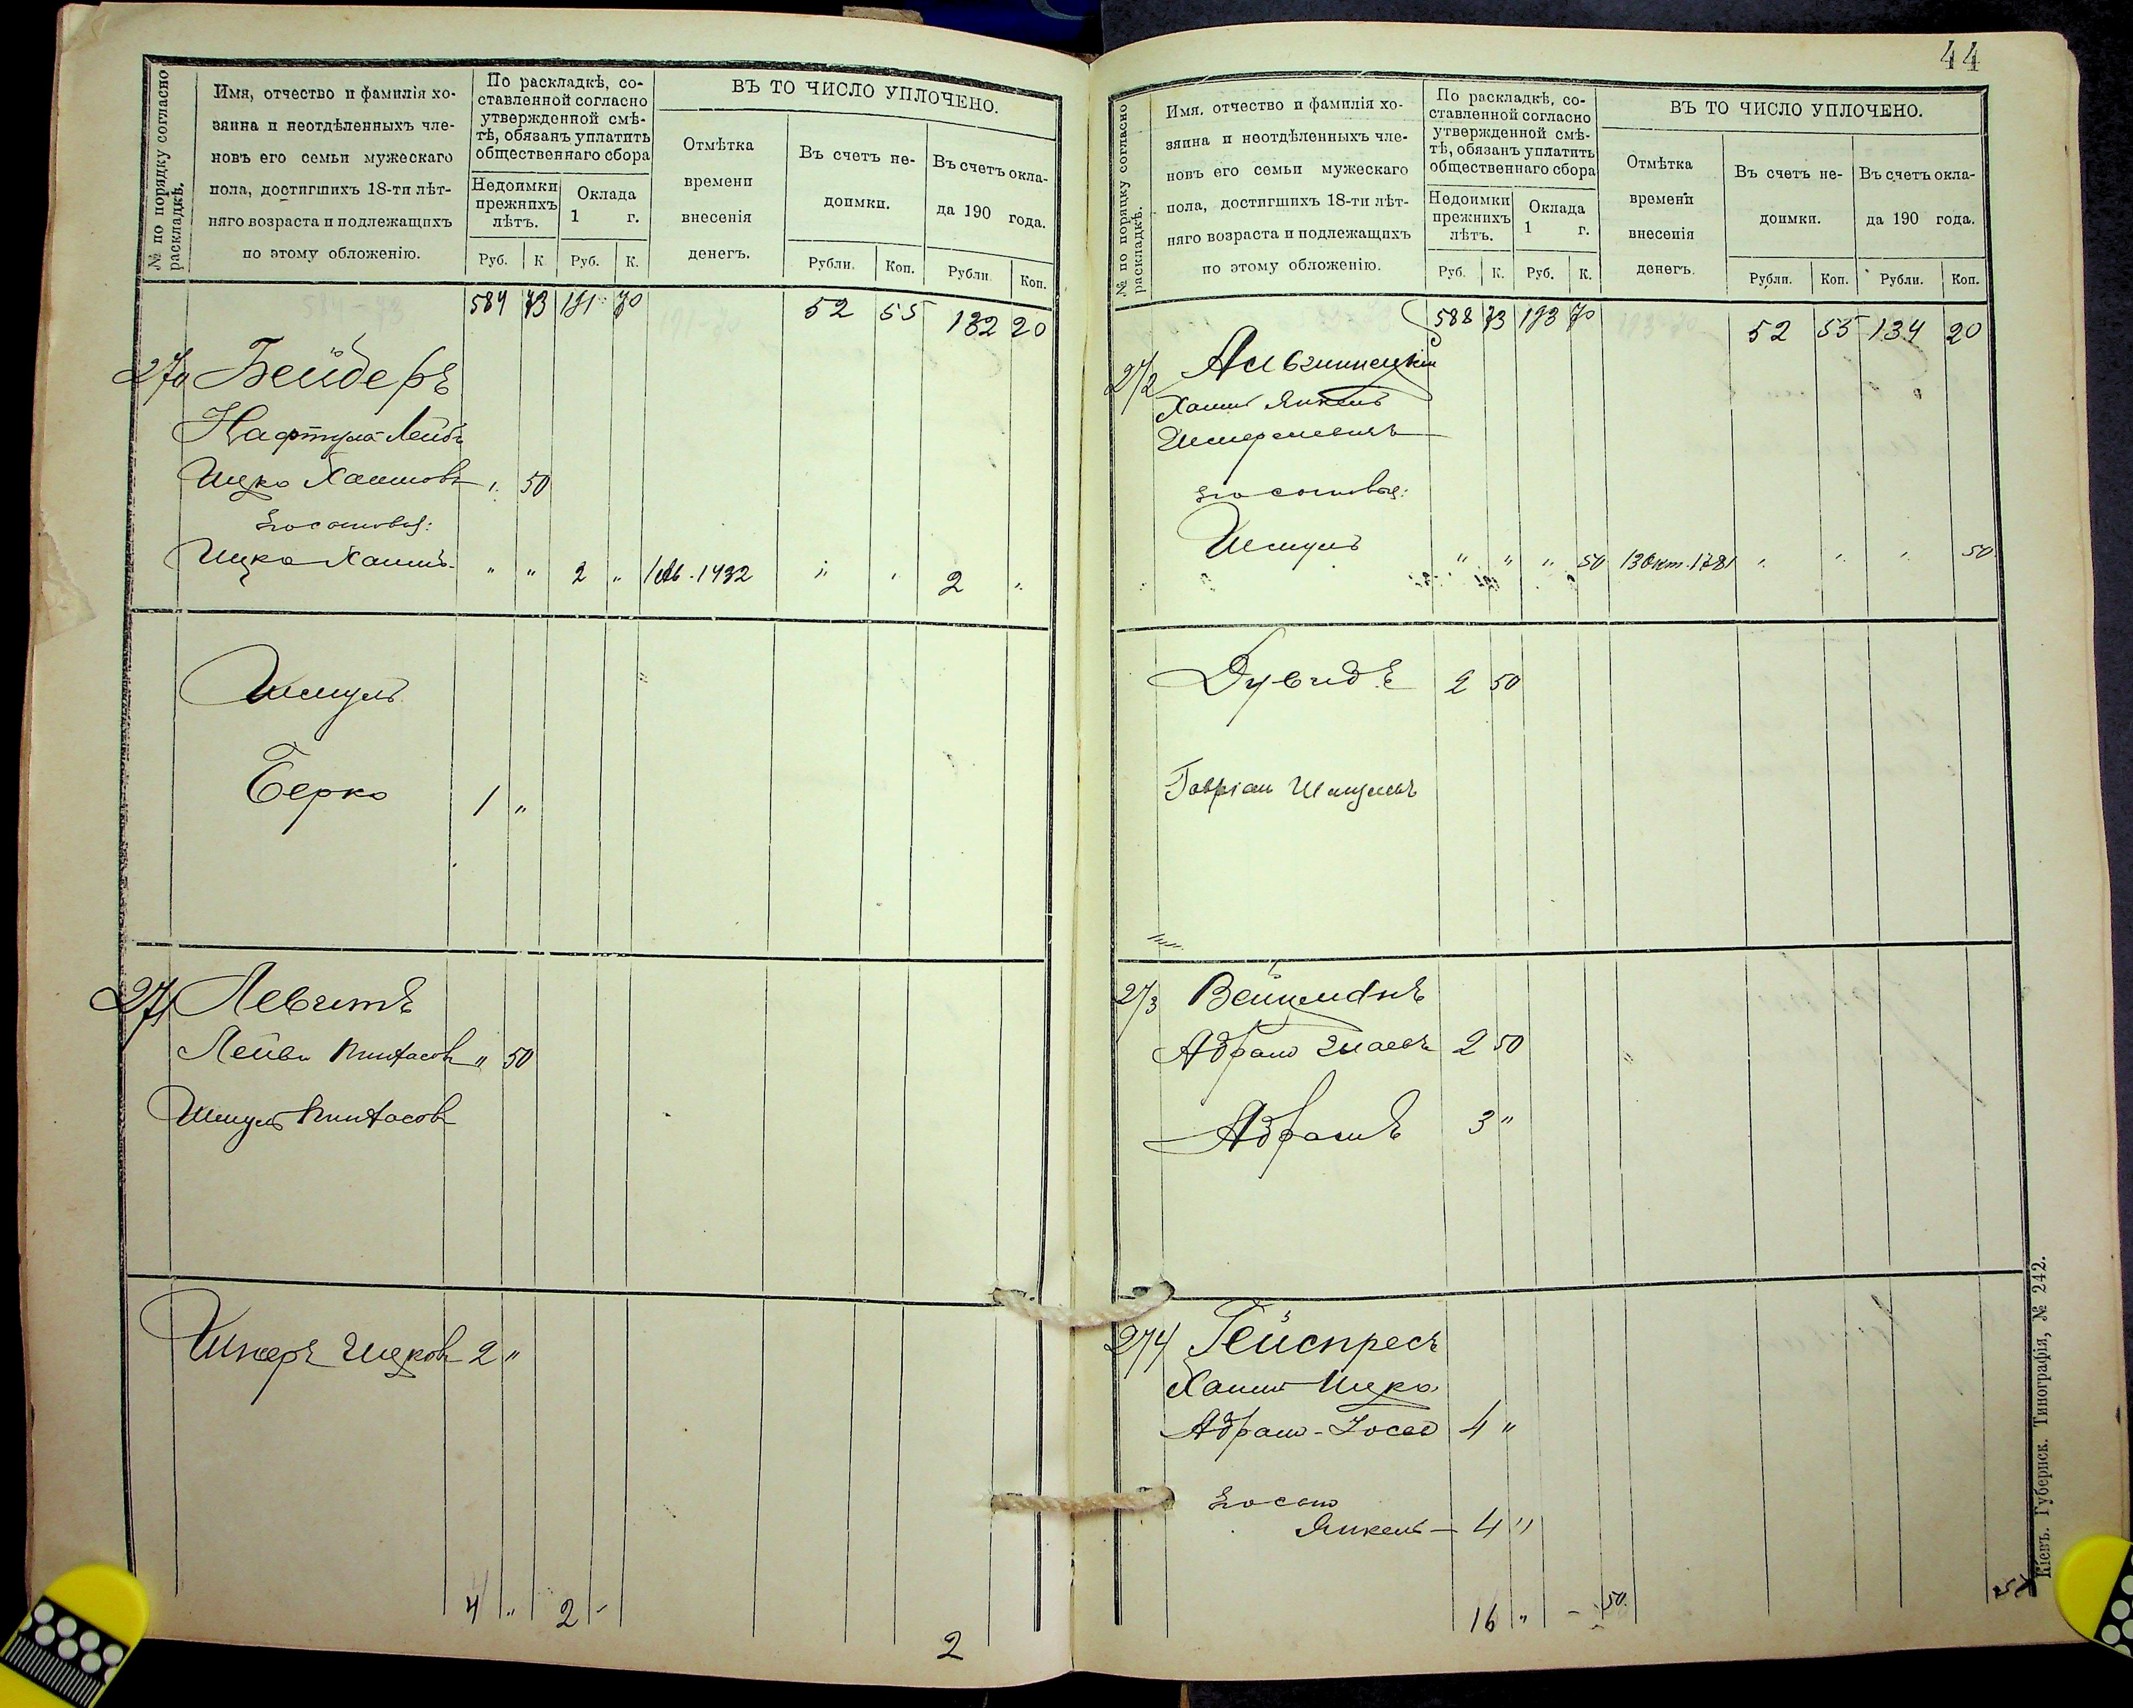 № по порядку согласно раскладкѣ.
Имя, отчество и фамилія хо-
зяина и неотдѣленныхъ чле-
новъ его семьи мужескаго
пола, достигшихъ 18-ти лѣт-
няго возраста и подлежащихъ
по этому обложенію.
По раскладкѣ, со-
ставленной согласно
утвержденной смѣ-
тѣ, обязанъ уплатить
общественнаго сбора
Недоимки
прежнихъ
лѣтъ.
Оклада
1 г.
Руб. К. Руб. К.
ВЪ ТО ЧИСЛО УПЛОЧЕНО.
Отмѣтка
времени
внесенія
денегъ.
Въ счетъ не-
доимки.
Въ счетъ окла-
да 190 года.
Рубли. Коп. Рубли. Коп.
584 73 191 70 52 55 132 20
270 Бейдеръ
Нафтула-Лейбъ
Ицко Хаимовъ " 50
Его сыновья:
Ицко Хаимъ " " 2 " 1432 " " 2 "
Шмуль
Берко 1 "
271 Левитъ
Лейба Пинхасовъ " 50
Шмуль Пинхасовъ
Ицковъ 2 "
4 " 2 -
2
44
№ по порядку согласно раскладкѣ.
Имя, отчество и фамилія хо-
зяина и неотдѣленныхъ чле-
новъ его семьи мужескаго
пола, достигшихъ 18-ти лѣт-
няго возраста и подлежащихъ
по этому обложенію.
По раскладкѣ, со-
ставленной согласно
утвержденной смѣ-
тѣ, обязанъ уплатить
общественнаго сбора
Недоимки
прежнихъ
лѣтъ.
Оклада
1 г.
Руб. К. Руб. К.
ВЪ ТО ЧИСЛО УПЛОЧЕНО.
Отмѣтка
времени
внесенія
денегъ.
Въ счетъ не-
доимки.
Въ счетъ окла-
да 190 года.
Рубли. Коп. Рубли. Коп.
588 73 193 70 52 55 134 20
272
Хаимъ Янкель
Шмерелевичъ
Его сыновья:
Шмуль " " " 50 13 Окт. 1781 " " " 50
Дувидъ 2 50
Гавріель Шмулевъ
273 Вейцманъ
Абрамъ 2 50
Абрамъ 3 "
274 Гейспресъ
Хаимъ Ицко
Абрамъ-Іосев 4 "
Его сынъ
Янкель - 4 "
16 " - 50
Кіевъ. Губернск. Типографія, № 242.